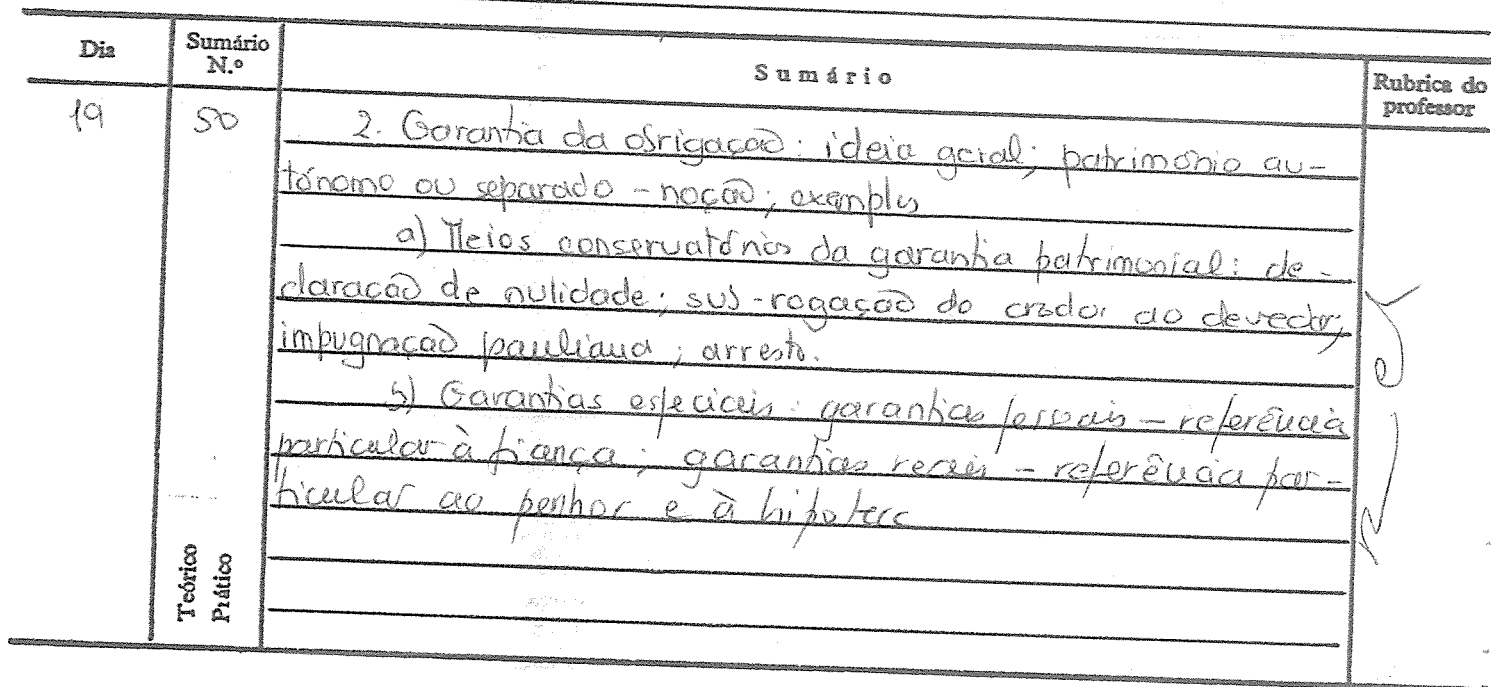 Dia Sumário N.º Sumário Rubrica do professor
19 50 2. Garantia da obrigação: ideia geral; património au-
tónomo ou separado - noção; exemplos
a) Meios conservatórios da garantia patrimonial: de-
claração de nulidade; sub-rogação do credor ao devedor;
impugnação pauliana; arresto.
b) Garantias especiais: garantias pessoais - referência
particular à fiança; garantias reais - referência par-
ticular ao penhor e à hipoteca
Teórico
Prático